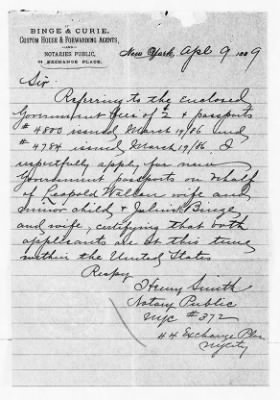 BINGE & CURIE,
CUSTOM HOUSE & FORWARDING AGENTS,
—AND—
NOTARIES PUBLIC,
44 EXCHANGE PLACE.
New York, Apl 9 1889
Sir
Referring to the enclosed
Government fees of 2 & passports
# 4800 issued March 19/86 and
# 4784 issued March 19/86 I
respectfully apply for new
Government passports on behalf
of Leopold Wallach wife and
Junior child & Julius Binge
and wife, certifying that both
applicants are at this time
within the United States
Respy
Henry Smith
Notary Public
NYC # 372
44 Exchange Place
NYCity